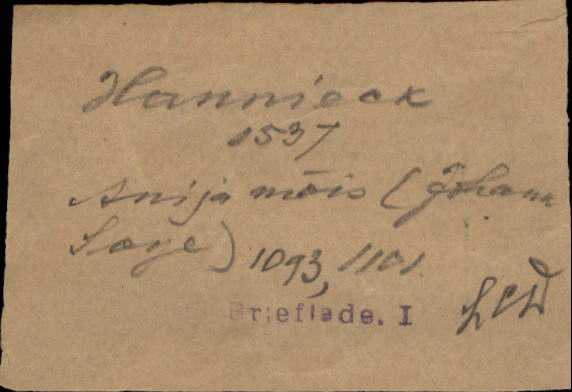 Hannieck
1537
Anija mõis (Johann
Saye) 1093, 1101.
Brieflade. I